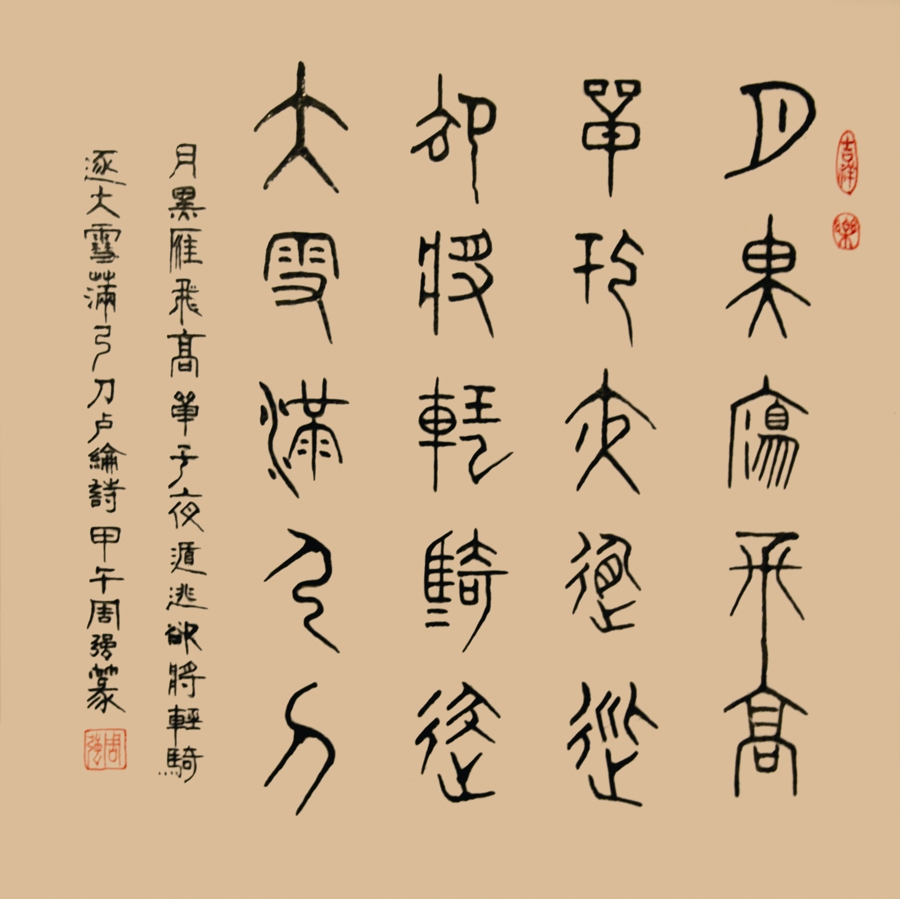 吉祥
樂
月黑雁飛高
單于夜遁逃
欲將輕騎逐
大雪滿弓刀
月黑雁飛高單于夜遁逃欲將輕騎
逐大雪滿弓刀卢綸詩甲午周强篆
周強